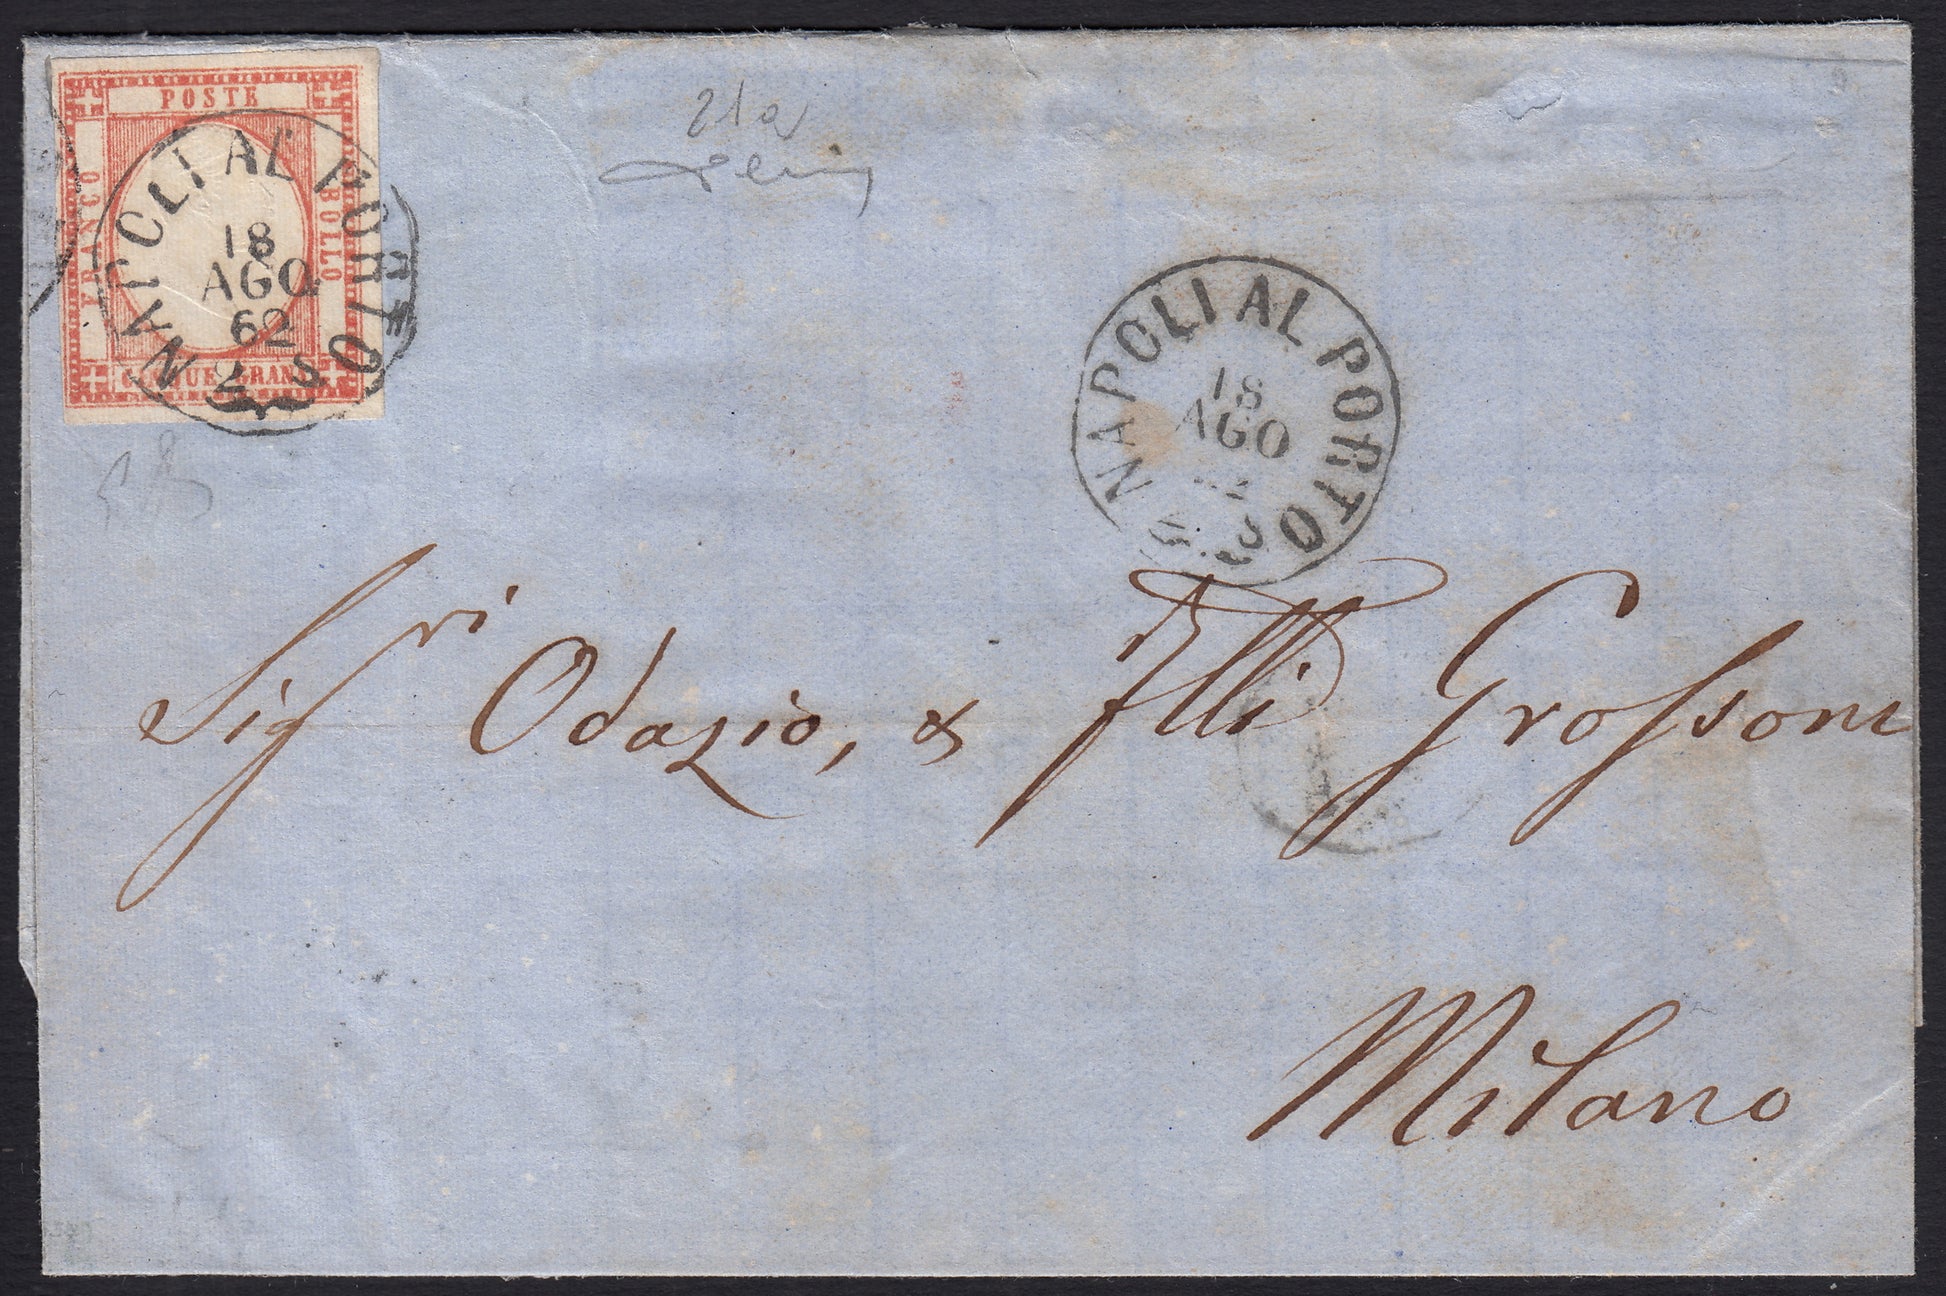 POSTE
FRANCO
BOLLO
CINQUE GRANA
NAPOLI AL PORTO
18
AGO
62
2 S
21a
NAPOLI AL PORTO
18
AGO
Sigri Odazio, & flli Grossoni
Milano